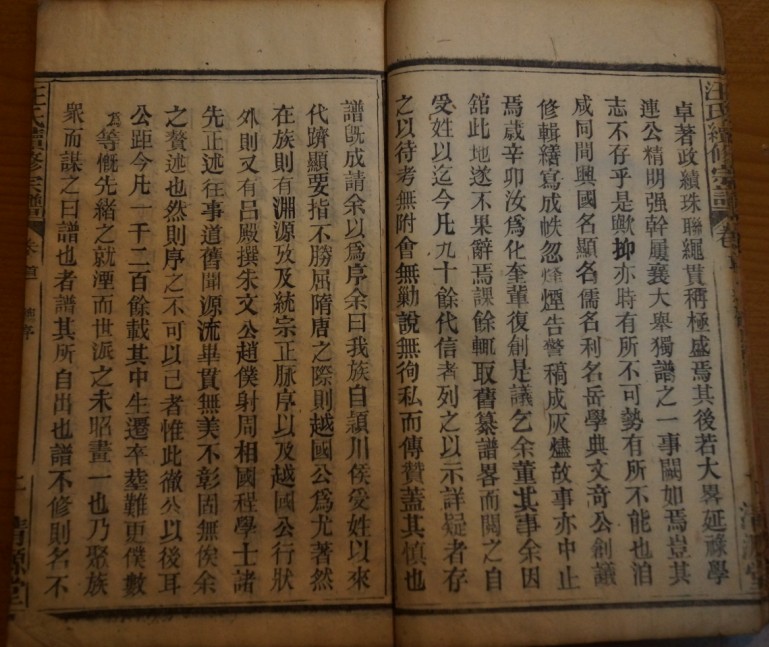 汪氏續修宗譜
卓著政績珠聯繩貫稱極盛焉其後若大畧延祿學
連公精明强幹屢襄大舉獨譜之一事闕如焉豈其
志不存乎是歟抑亦時有所不可勢有所不能也洎
咸同間興國名顯名儒名利名岳學典文竒公創議
修輯繕寫成帙忽烽煙告警稿成灰燼故事亦中止
焉歲辛卯汝爲化奎輩復創是議乞余董其事余因
舘此地遂不果辭焉課餘輒取舊纂譜畧而閱之自
受姓以迄今凡九十餘代信者列之以示詳疑者存
之以待考無附會無勦說無徇私而傳贊蓋其愼也
譜旣成請余以爲序余曰我族自潁川侯受姓以來
代躋顯要指不勝屈隋唐之際則越國公爲尤著然
在族則有淵源攷及統宗正脉序以及越國公行狀
外則又有呂殿撰朱文公趙僕射周相國程學士諸
先正述徃事道舊聞源流畢貫無美不彰固無俟余
之贅述也然則序之不可以已者惟此徹公以後耳
公距今凡一千二百餘載其中生遷卒塟難更僕數
等慨先緒之就湮而世派之未昭畫一也乃聚族
衆而謀之曰譜也者譜其所自出也譜不修則名不
汪氏續修宗譜
卷首
序
二
清源堂